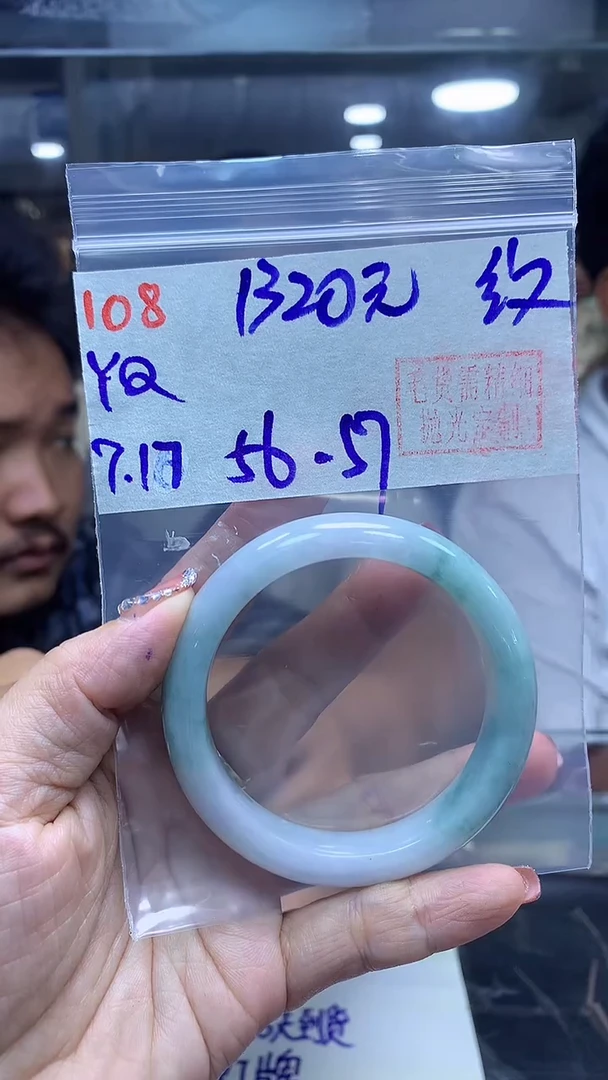 108 1320元 纹
YQ
毛货需精细
抛光定制
7.17 56-57
天到货
牌